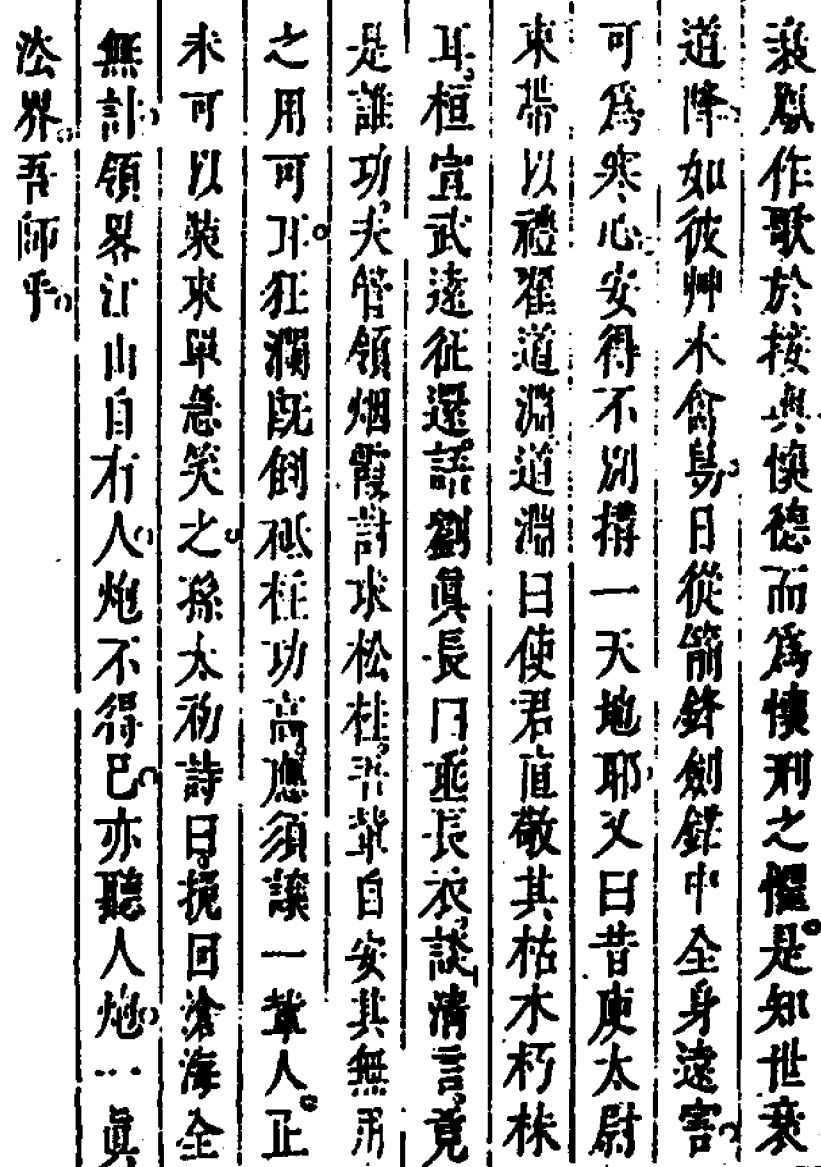 衰鳳作歌於接輿懷德而爲懷刑之懼是知世衰
道降如彼艸木禽鳥日從箭鋒劍鋩中全身遠害
可爲寒心安得不別構一天地耶又曰昔庾太尉
束帶以禮翟道淵道淵曰使君直敬其枯木朽株
耳桓宣武遠征還語劉眞長曰垂長衣談清言竟
是誰功夫管領烟霞討求松桂吾輩自安其無用
之用可耳狂瀾旣倒砥柱功高應須讓一輩人正
未可以裝束單急笑之孫太初詩曰挽回滄海全
無計領畧江山自有人炮不得已亦聽人炮一眞
法界吾師乎